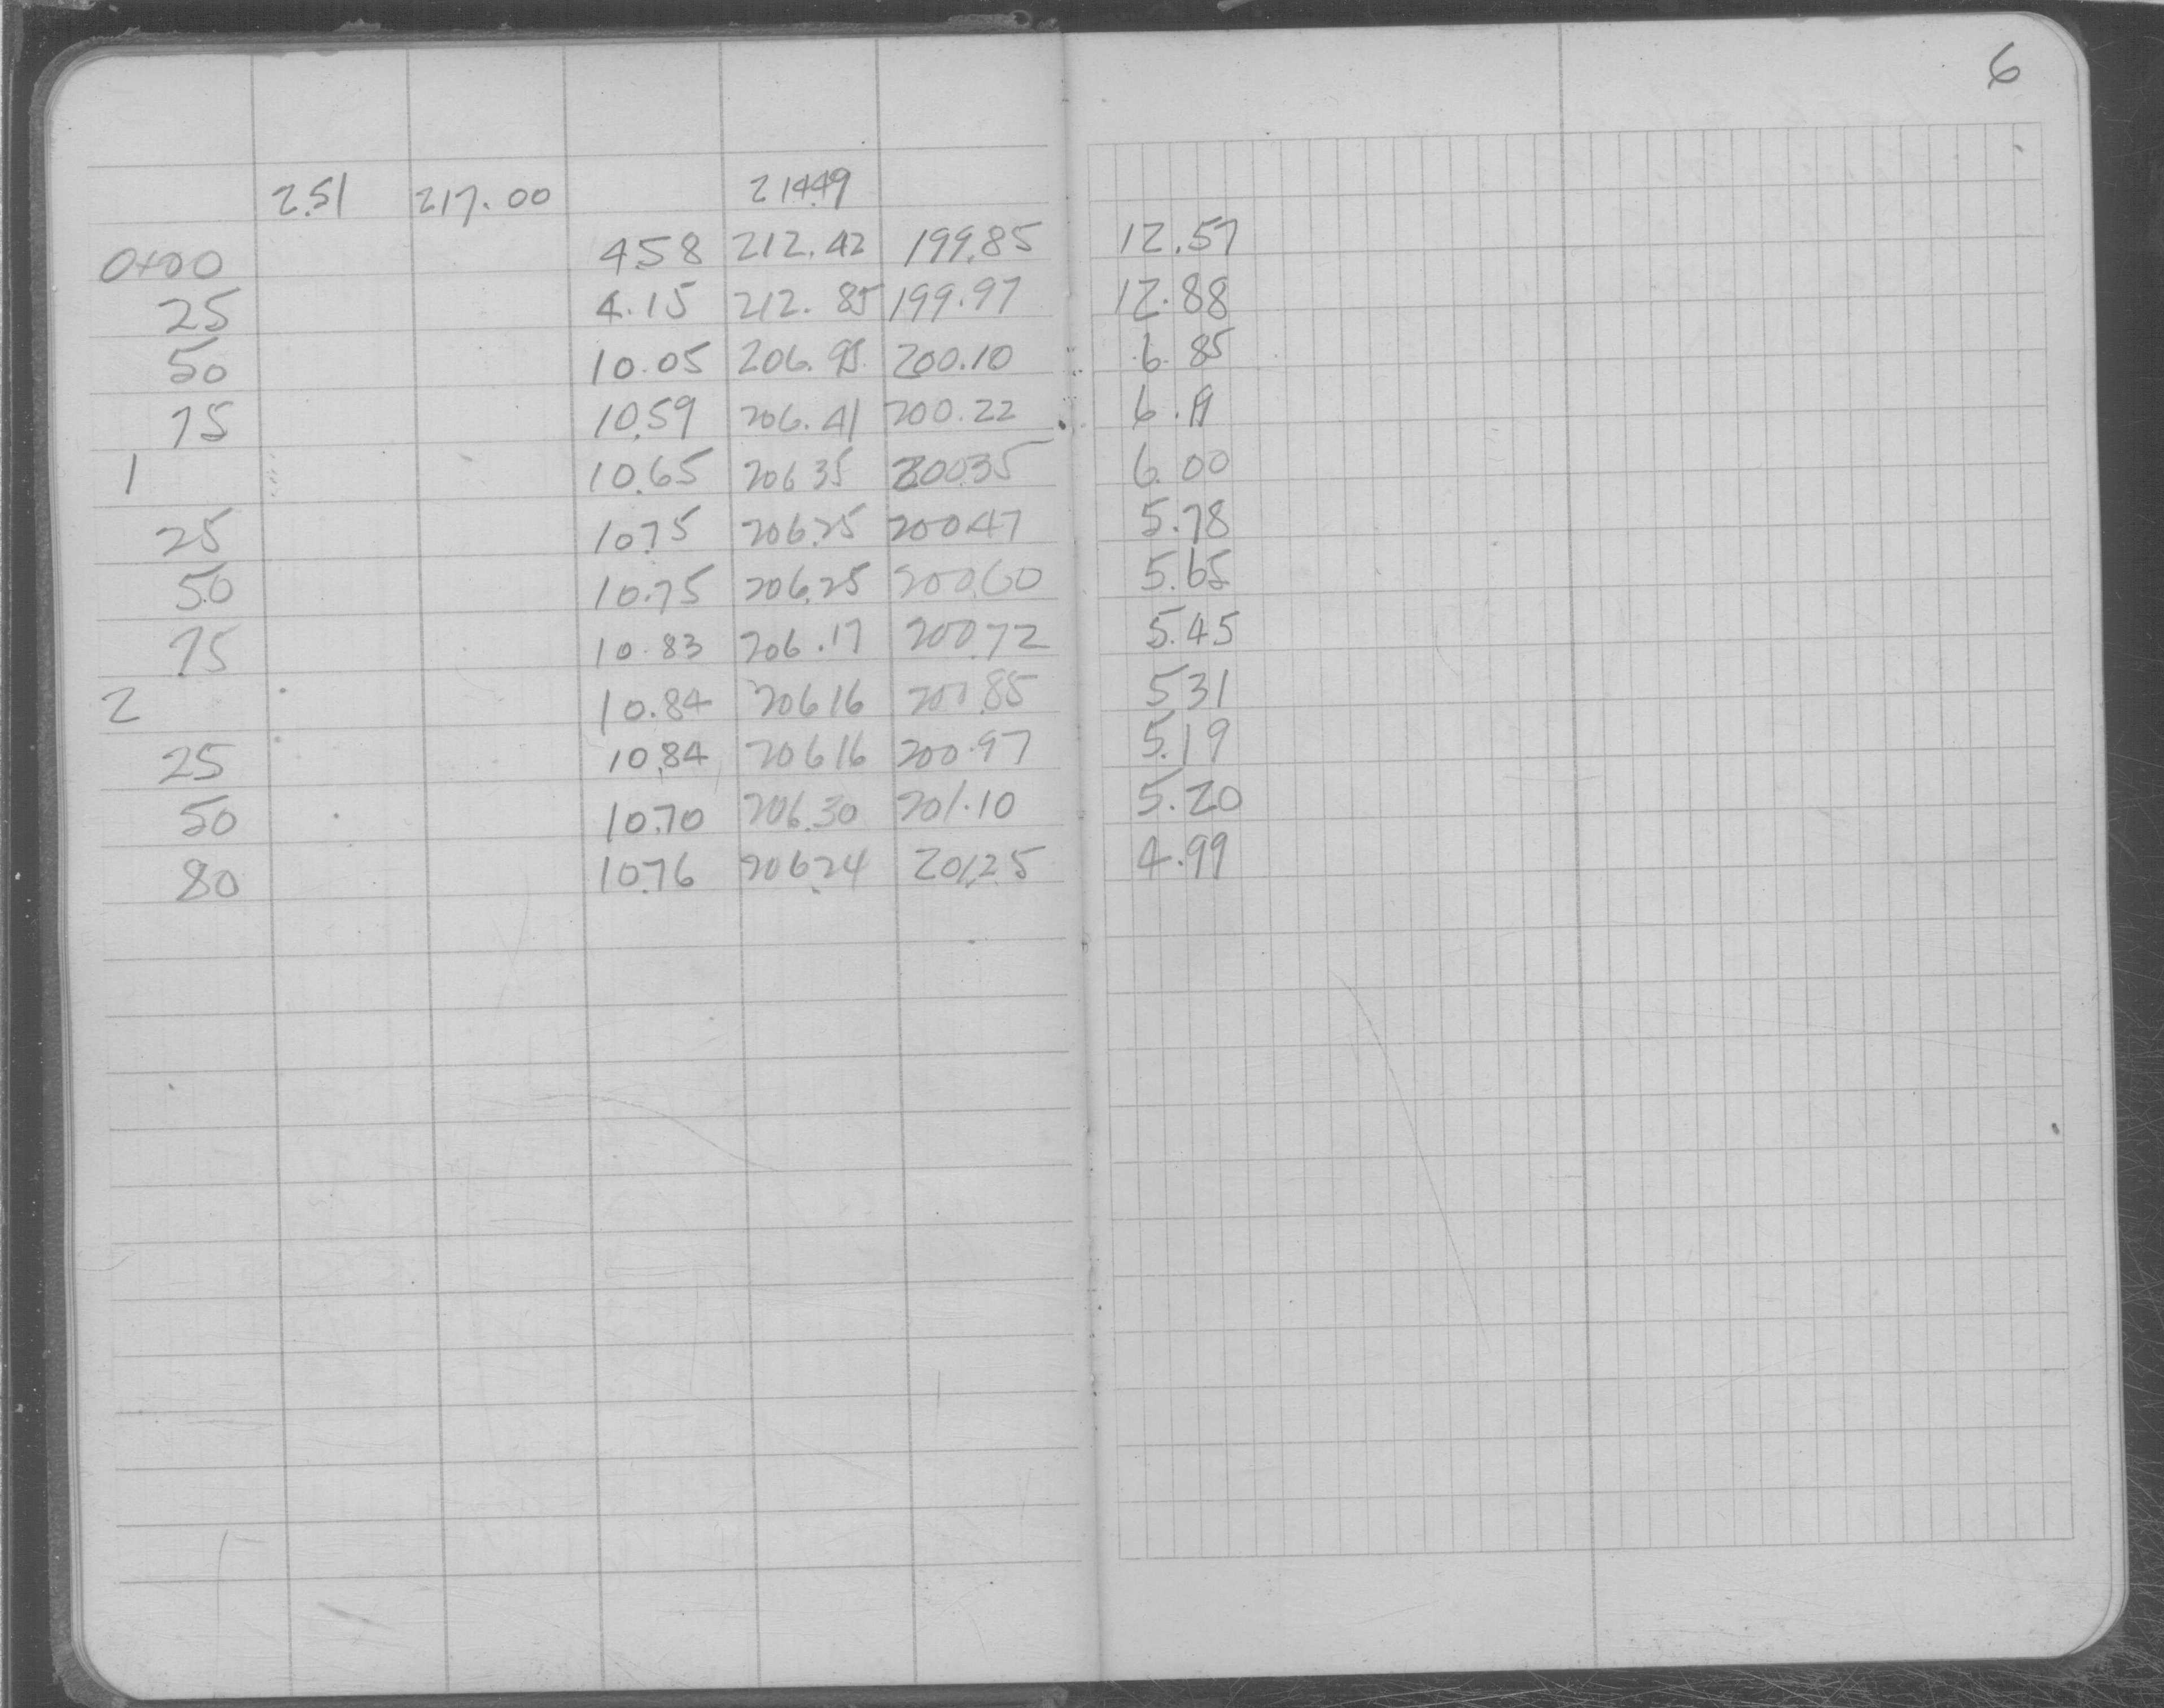 6
2.51 217.00 214.49
0+00 4.58 212.42 199.85 12.57
25 4.15 212.85 199.97 12.88
50 10.05 206.95 200.10 6.85
75 10.59 206.41 200.22 6.19
1 10.65 206.35 200.35 6.00
25 10.75 206.25 200.47 5.78
50 10.75 206.25 200.60 5.65
75 10.83 206.17 200.72 5.45
2 10.84 206.16 200.85 5.31
25 10.84 206.16 200.97 5.19
50 10.70 206.30 201.10 5.20
80 10.76 206.24 201.25 4.99